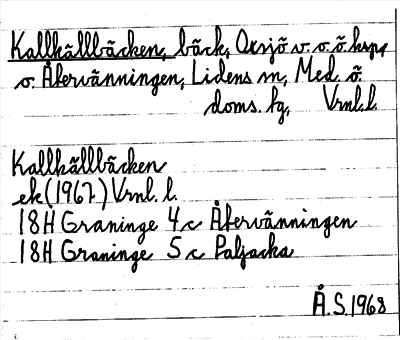 Kallkällbäcken, bäck, Oxsjö v. o. ö. hspr
o. Återvänningen, Lidens sn, Med. ö.
doms. fg, Vrnl. l.
Kallkällbäcken
ek (1967) Vrnl. l.
18H Graninge 4c Återvänningen
18H Graninge 5c Paljacka
Å.S. 1968